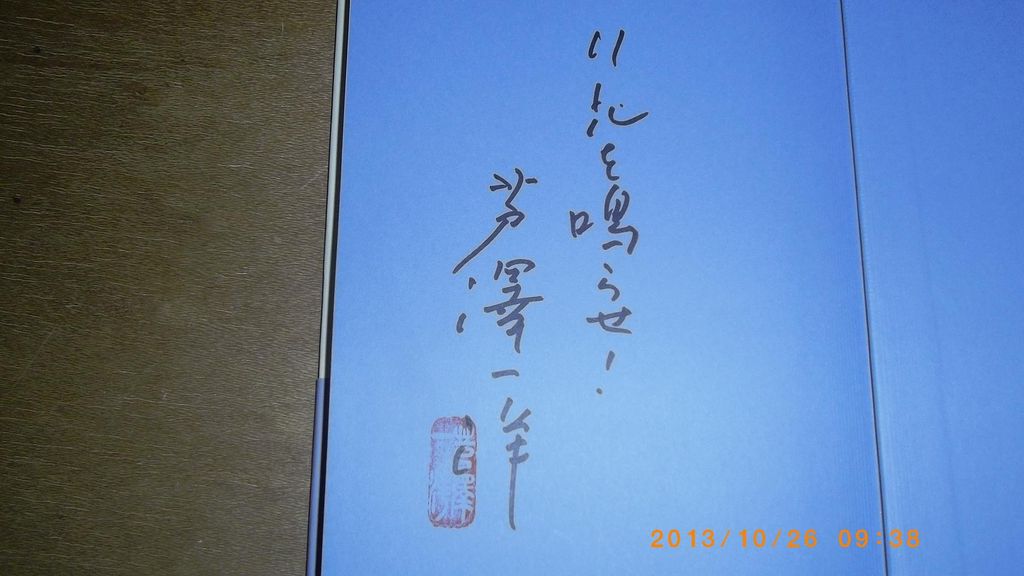 を鳴らせ!
芦澤一洋
2013/10/26 09:38